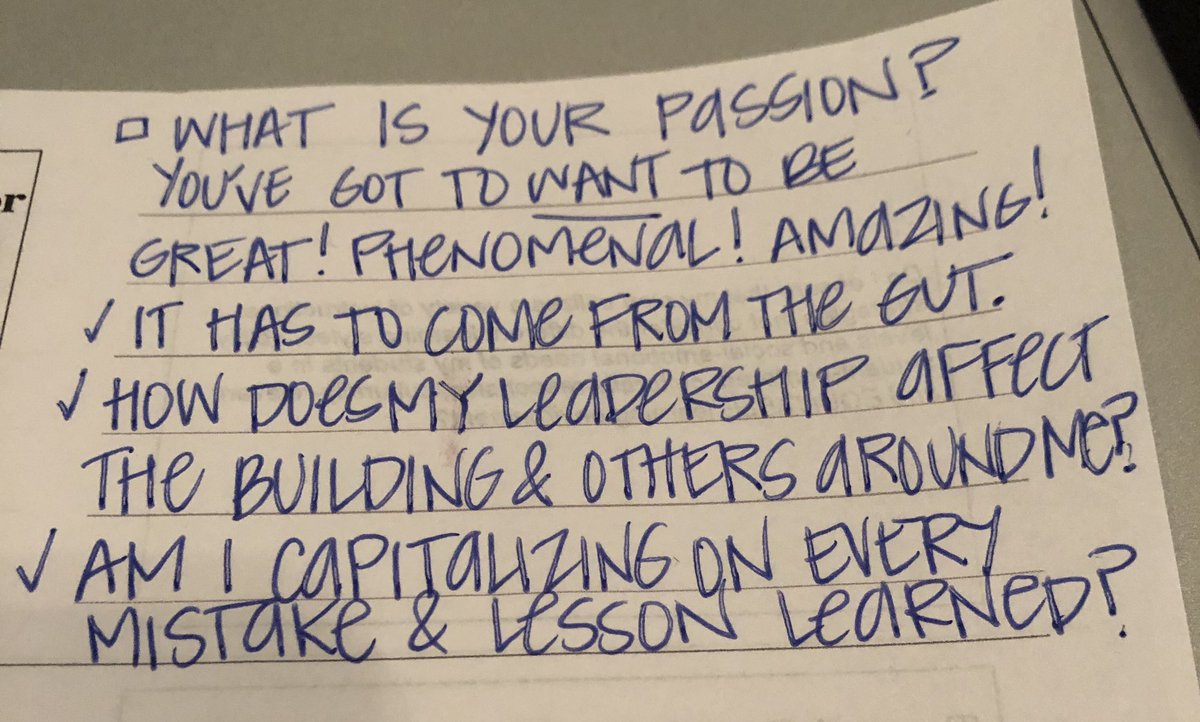 □ WHAT IS YOUR PASSION?
YOU'VE GOT TO WANT TO BE
GREAT! PHENOMENAL! AMAZING!
✓ IT HAS TO COME FROM THE GUT.
✓ HOW DOES MY LEADERSHIP AFFECT
THE BUILDING & OTHERS AROUND ME?
✓ AM I CAPITALIZING ON EVERY
MISTAKE & LESSON LEARNED?